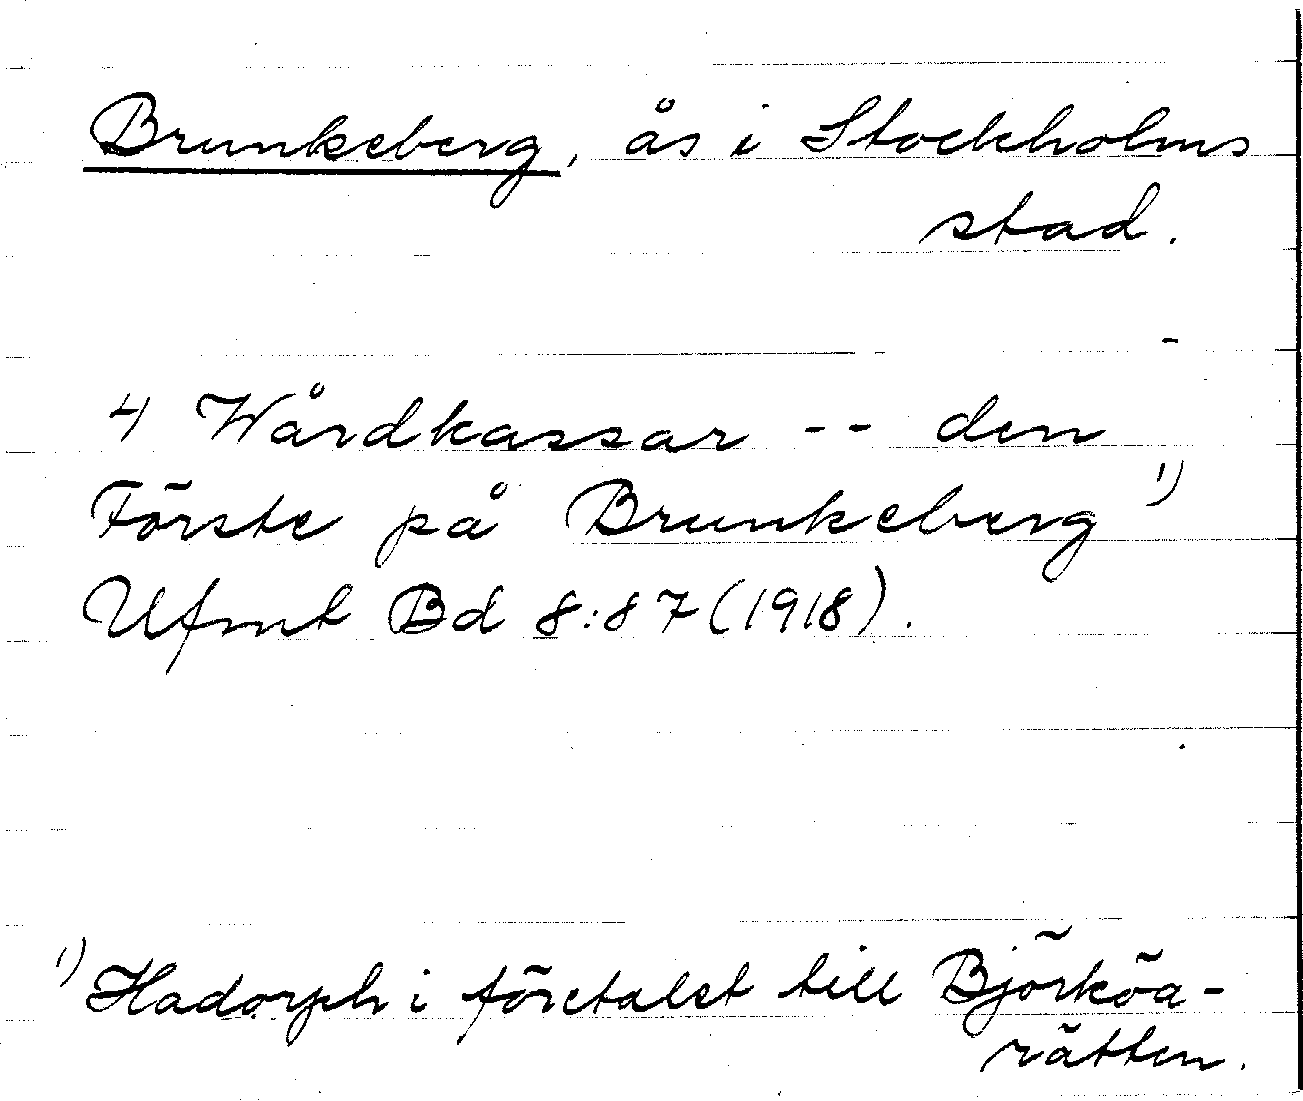 Brunkeberg, ås i Stockholms
stad.
4 Wårdkassar -- den
Förste på Brunkeberg 1)
Ufmt Bd 8:87 (1918).
1) Hadorph i företalet till Björköa-
rätten.